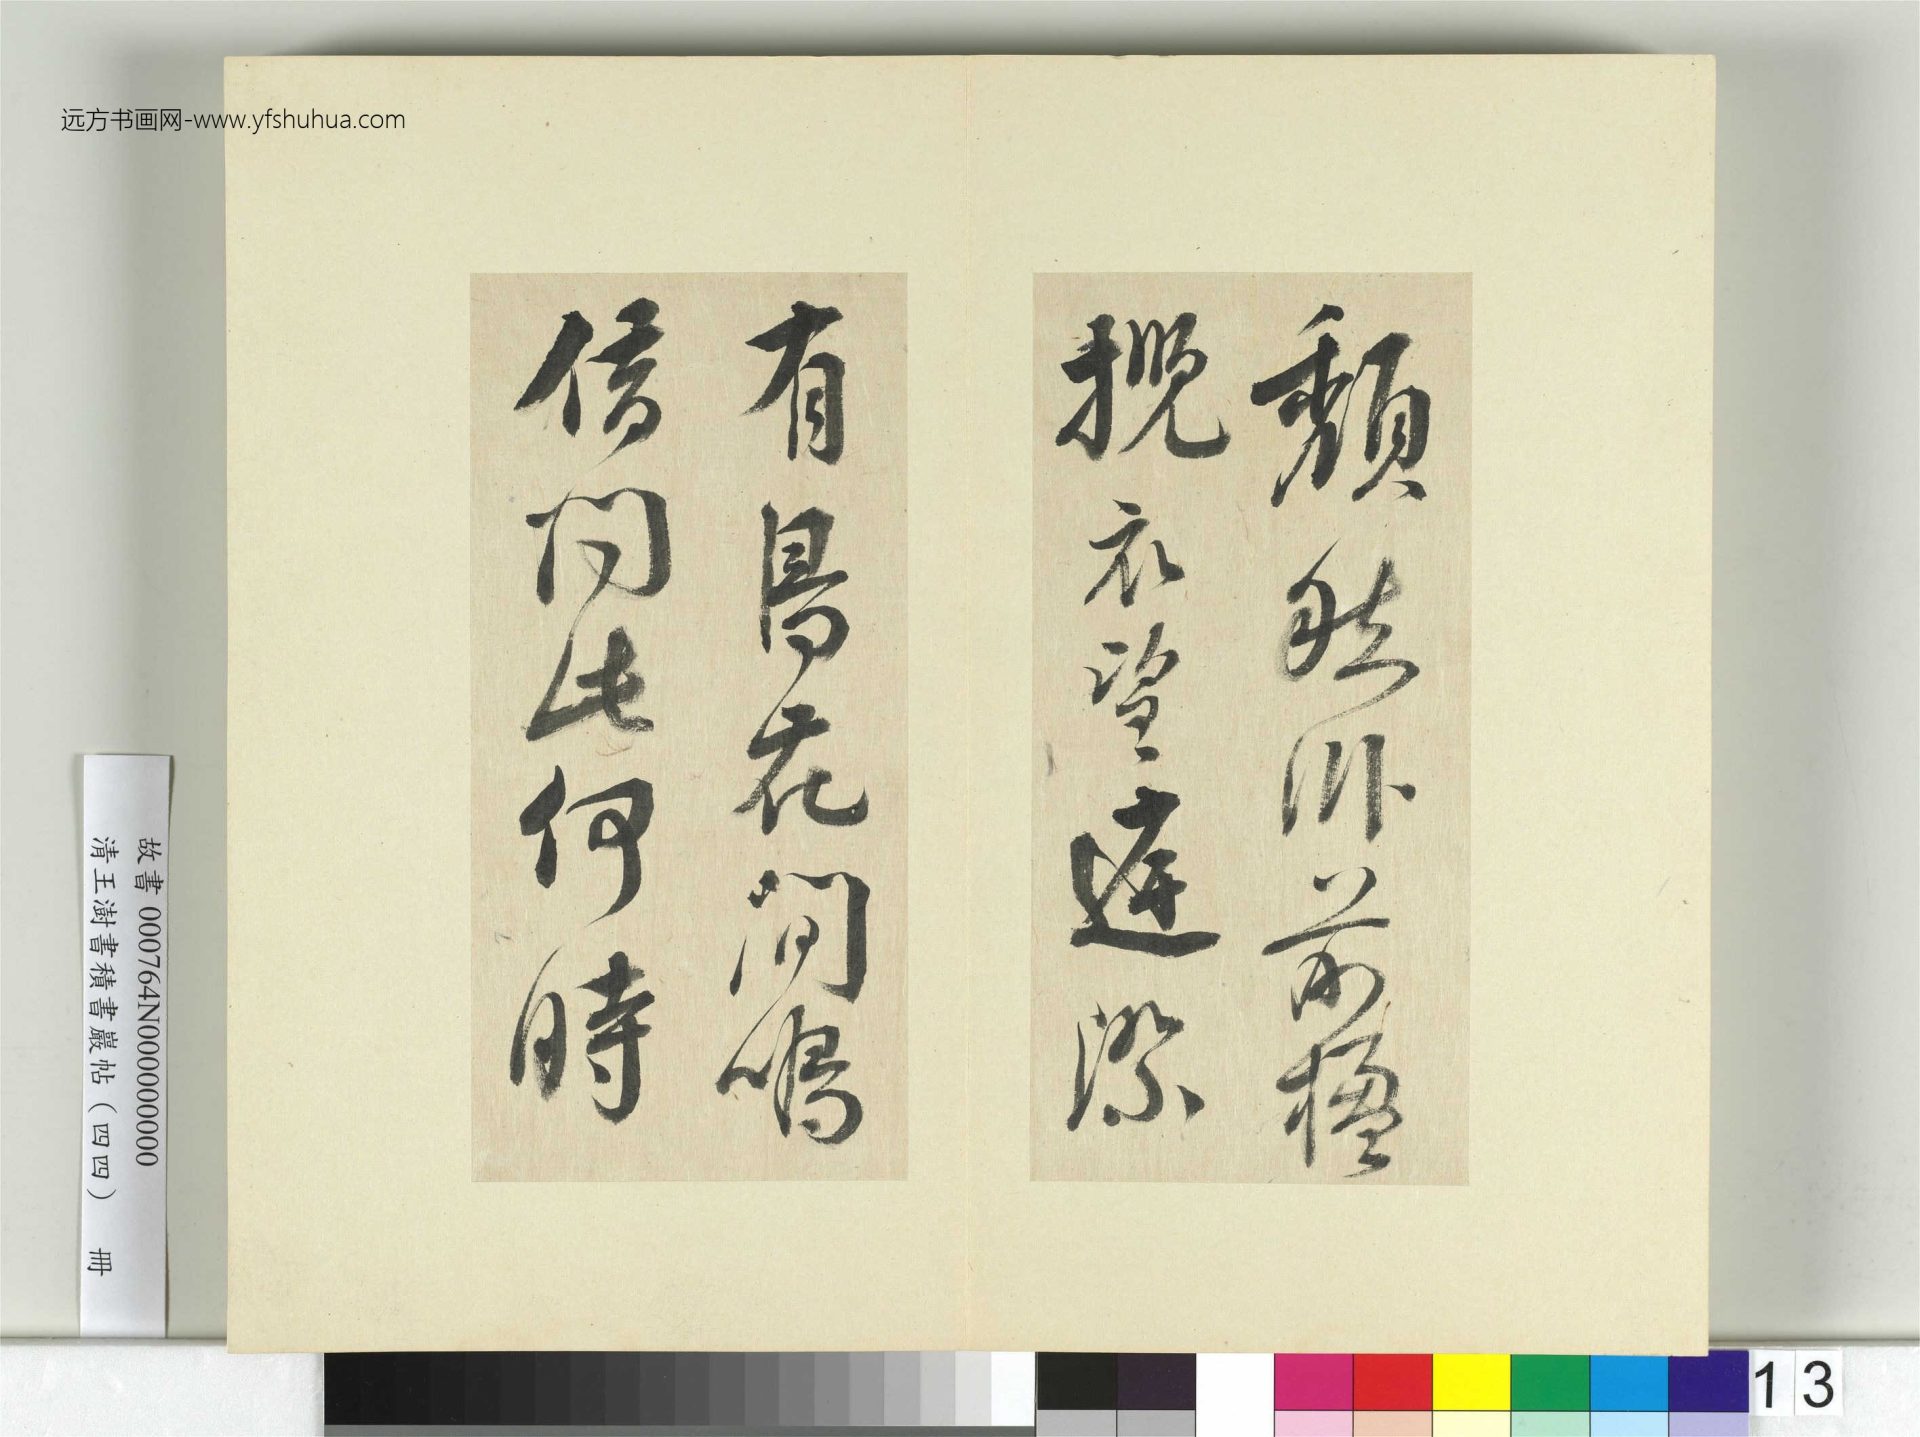 远方书画网-www.yfshuhua.com
頹然臥前楹
攬衣望庭際
有鳥花間鳴
借問此何時
故書000764N000000000
清王澍書積書巖帖（四四） 冊
13